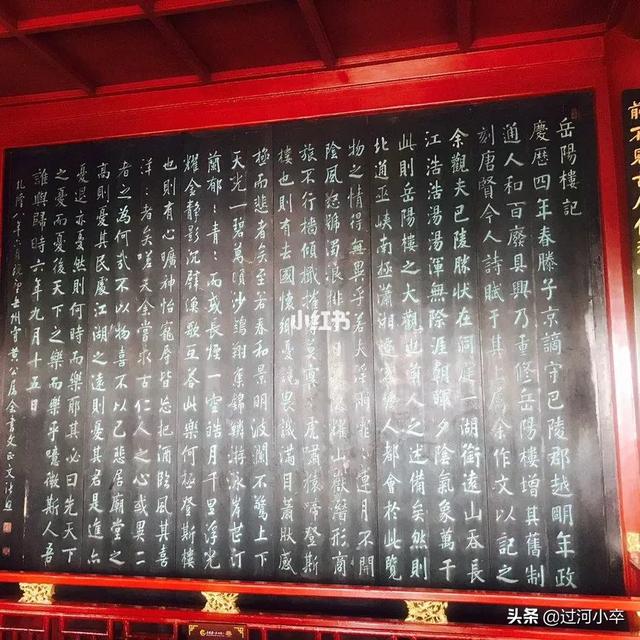 岳陽樓記
慶歷四年春滕子京謫守巴陵郡越明年政
通人和百廢具興乃重修岳陽樓增其舊制
刻唐賢今人詩賦于其上屬余作文以記之
余觀夫巴陵勝狀在洞庭一湖銜遠山吞長
江浩浩湯湯渾無際涯朝暉夕陰氣象萬千
此則岳陽樓之大觀也前人之述備矣然則
北通巫峽南極瀟湘遷客騷人都會於此覽
物之情得無異乎若夫淫雨霏霏連月不開
陰風怒號濁浪排日星隱耀山嶽潛形商
旅不行檣傾檝摧莫冥虎嘯猿啼登斯
樓也則有去國懷鄉憂讒畏譏滿目蕭然感
極而悲者矣至若春和景明波瀾不驚上下
天光一碧萬頃沙鷗翔集錦鱗游泳岸芷汀
蘭郁:青:而或長煙一空皓月千里浮光
耀金靜影沉璧漁歌互答此樂何極登斯樓
也則有心曠神怡寵辱皆忘把酒臨風其喜
洋:者矣嗟夫余嘗求古仁人之心或異二
者之為何哉不以物喜不以己悲居廟堂之
高則憂其民處江湖之遠則憂其君是進亦
憂退亦憂然則何時而樂耶其必曰先天下
之憂而憂後天下之樂而樂乎噫微斯人吾
誰與歸時六年九月十五日
乾隆八年六月岳州守黄公屬余書文正文張照
小红书
头条 @过河小卒